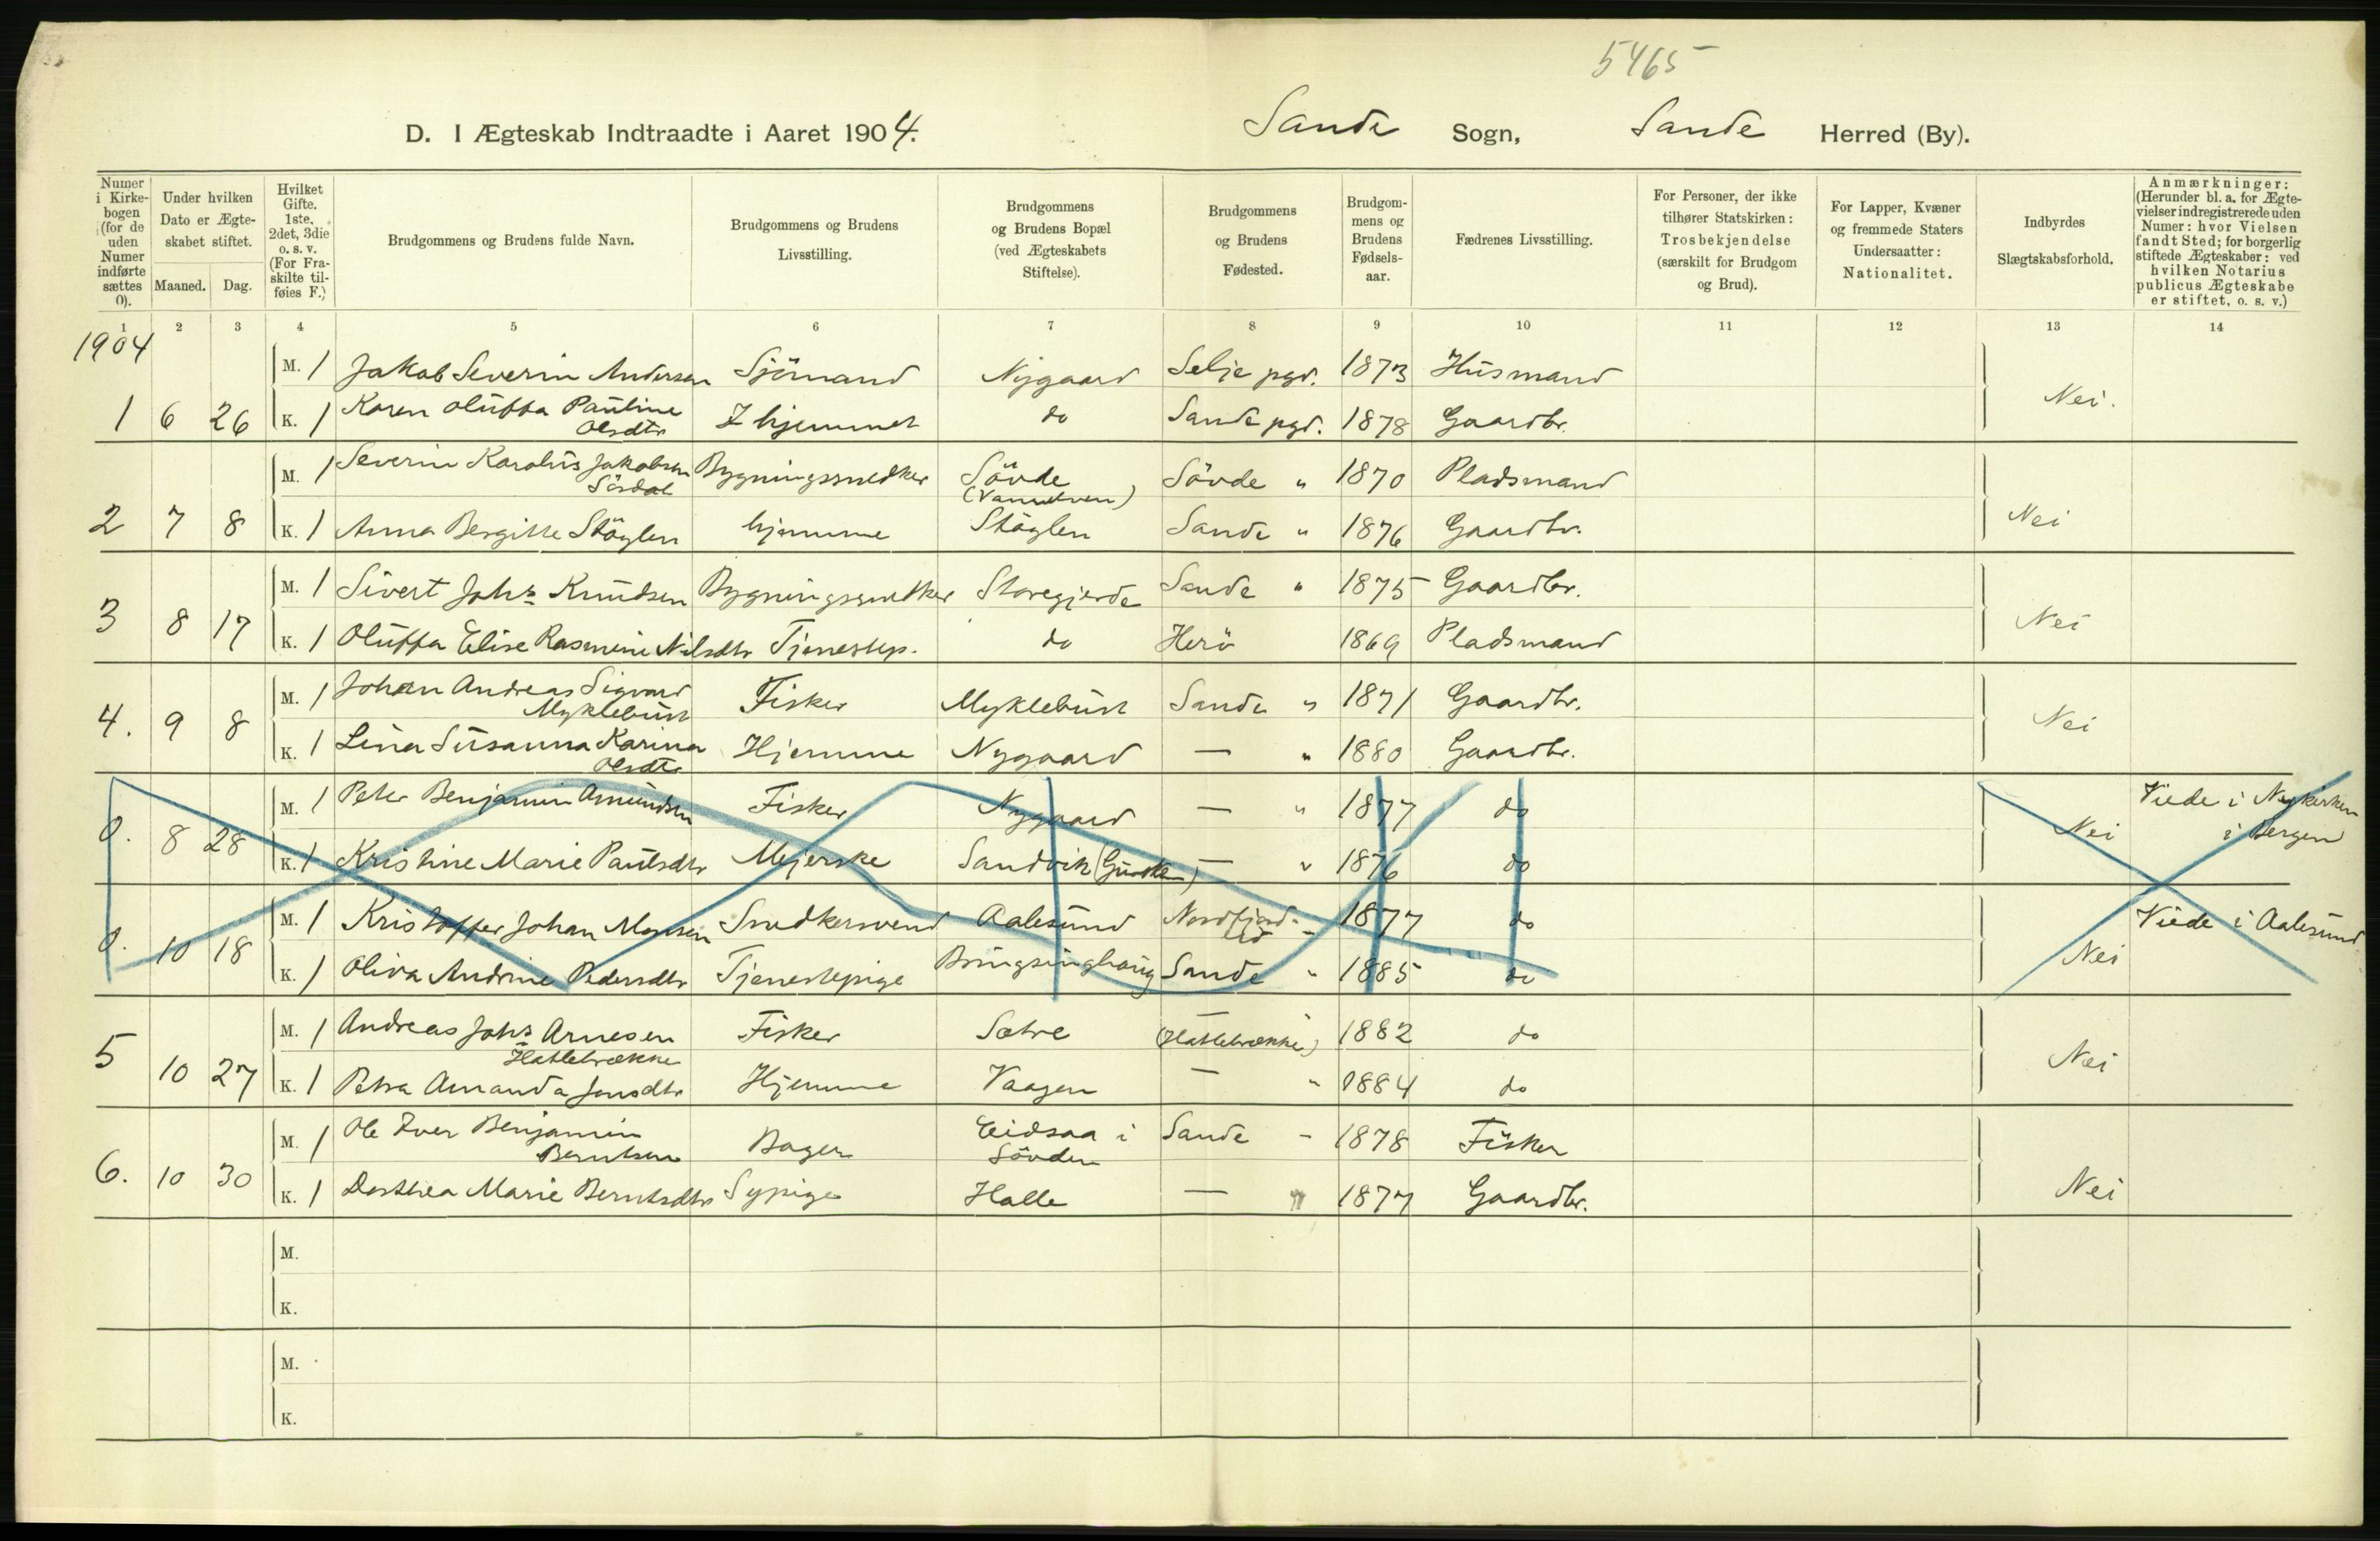 5465
D. I Ægteskab Indtraadte i Aaret 1904. Sande Sogn, Sande Herred (By).
Numer i Kirke-bogen (for de uden Numer indførte sættes 0).
Under hvilken Dato er Ægte-skabet stiftet.
Maaned. Dag.
Hvilket Gifte. 1ste, 2det, 3die o. s. v. (For Fra-skilte til-føies F.)
Brudgommens og Brudens fulde Navn.
Brudgommens og Brudens Livsstilling.
Brudgommens og Brudens Bopæl (ved Ægteskabets Stiftelse).
Brudgommens og Brudens Fødested.
Brudgom-mens og Brudens Fødsels-aar.
Fædrenes Livsstilling.
For Personer, der ikke tilhører Statskirken: Trosbekjendelse (særskilt for Brudgom og Brud).
For Lapper, Kvæner og fremmede Staters Undersaatter: Nationalitet.
Indbyrdes Slægtskabsforhold.
Anmærkninger: (Herunder bl. a. for Ægte-vielser indregistrerede uden Numer: hvor Vielsen fandt Sted; for borgerlig stiftede Ægteskaber: ved hvilken Notarius publicus Ægteskabe er stiftet, o. s. v.)
1 2 3 4 5 6 7 8 9 10 11 12 13 14
1904
M. 1 Jakob Severin Andersen Sjömand Nygaard Selje pgd. 1873 Husmand
1 6 26 K. 1 Karen Oluffa Pauline Olsdtr I hjemmet do Sande pgd. 1878 Gaardbr. Nei.
M. 1 Severin Karolus Jakobsen Sördal Bygningssnedker Sövde (Vanelven) Sövde " 1870 Pladsmand
2 7 8 K. 1 Anna Bergitte Stöylen hjemme Stöylen Sande " 1876 Gaardbr. Nei
M. 1 Sivert Johs Knudsen Bygningssnedker Storegjerde Sande " 1875 Gaardbr.
3 8 17 K. 1 Oluffa Elise Rasmine Nilsdtr Tjenestep. do Herö 1869 Pladsmand Nei
M. 1 Johan Andreas Sigvard Myklebust Fisker Myklebust Sande " 1871 Gaardbr.
4. 9 8 K. 1 Lina Susanna Karina Olsdtr Hjemme Nygaard — " 1880 Gaardbr. Nei
M. 1 Peter Benjamin Amundsen Fisker Nygaard — " 1877 do Viede i Nykirken i Bergen
0. 8 28 K. 1 Kristine Marie Paulsdtr Mejerske Sandvik (Gursken) — " 1876 do Nei
M. 1 Kristoffer Johan Monsen Snedkersvend Aalesund Nordfjord-eid " 1877 do Viede i Aalesund
0. 10 18 K. 1 Oliva Andrine Pedersdtr Tjenestepige Bringsinghaug Sande " 1885 do Nei
M. 1 Andreas Johs Arnesen Hatlebrække Fisker Sætre — (Hatlebrække) 1882 do
5 10 27 K. 1 Petra Amanda Jonsdtr Hjemme Vaagen — " 1884 do Nei
M. 1 Ole Iver Benjamin Berntsen Bager Eidsaa i Sövden Sande - 1878 Fisker
6. 10 30 K. 1 Dorthea Marie Berntsdtr Sypige Halle — " 1877 Gaardbr. Nei
M.
K.
M.
K.